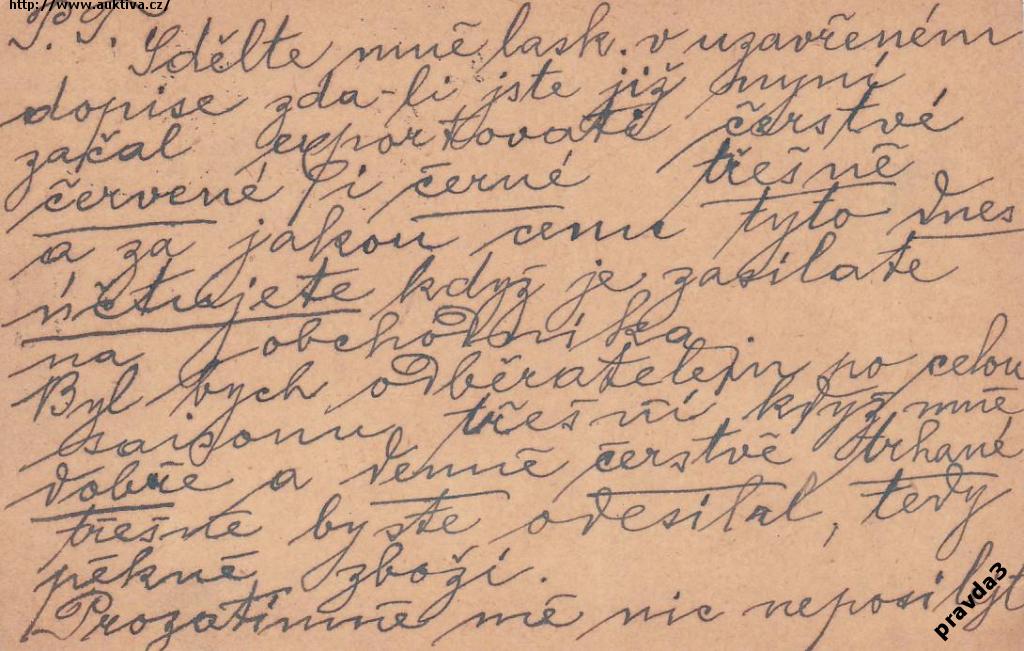 http://www.auktiva.cz/
P. T.
Sdělte mně lask. v uzavřeném
dopise zda-li jste již nyní
začal exportovati čerstvé
červené i černé třešně
a za jakou cenu tyto dnes
účtujete když je zasílate
na obchodníka
Byl bych odběratelem po celou
saisonu třešní když mně
dobře a denně čerstvě trhané
třešně byste odesílal, tedy
pěkné zboží.
Prozatímně mě nic neposílejt
pravda3